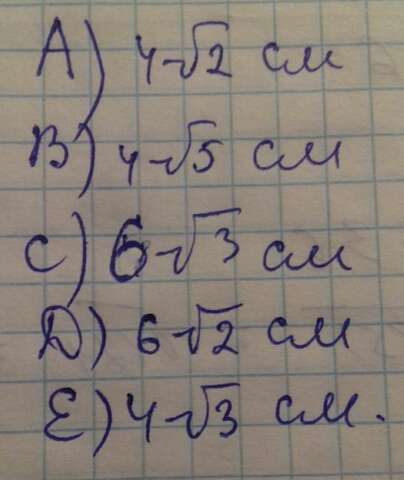 A) 4√2 см
B) 4√5 см
C) 6√3 см
D) 6√2 см
E) 4√3 см.